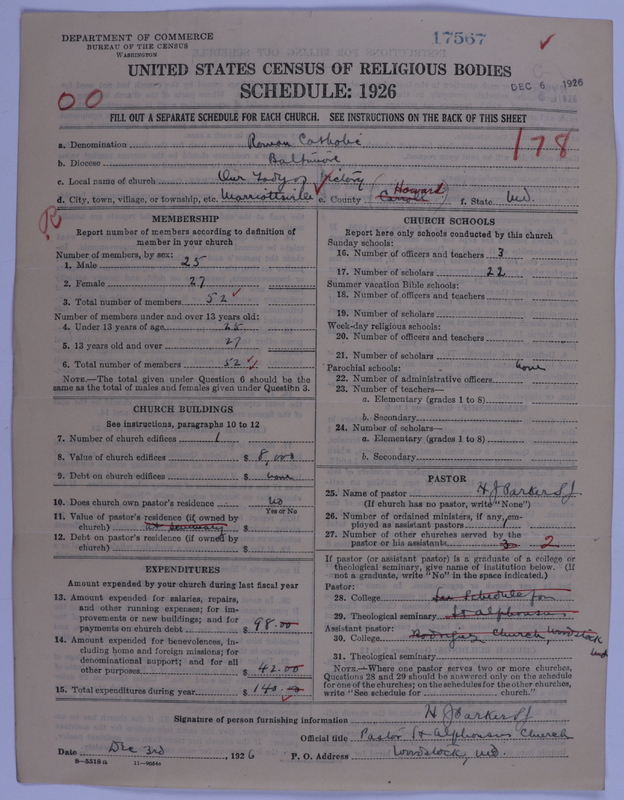 DEPARTMENT OF COMMERCE
BUREAU OF THE CENSUS
WASHINGTON
17567
UNITED STATES CENSUS OF RELIGIOUS BODIES
SCHEDULE: 1926
DEC 6 1926
00
FILL OUT A SEPARATE SCHEDULE FOR EACH CHURCH. SEE INSTRUCTIONS ON THE BACK OF THIS SHEET
178
a. Denomination Roman Catholic
b. Diocese Baltimore
c. Local name of church Our Lady of Victory
d. City, town, village, or township, etc. Marriottsville e. County (Carroll Howard) f. State Md.
R
MEMBERSHIP
Report number of members according to definition of
member in your church
Number of members, by sex:
1. Male 25
2. Female 27
3. Total number of members 52
Number of members under and over 13 years old:
4. Under 13 years of age 25
5. 13 years old and over 27
6. Total number of members 52
NOTE.—The total given under Question 6 should be the
same as the total of males and females given under Question 3.
CHURCH BUILDINGS
See instructions, paragraphs 10 to 12
7. Number of church edifices 1
8. Value of church edifices $ 8,000
9. Debt on church edifices $ none
10. Does church own pastor's residence No
Yes or No
11. Value of pastor's residence (if owned by
church) $
12. Debt on pastor's residence (if owned by
church) $
EXPENDITURES
Amount expended by your church during last fiscal year
13. Amount expended for salaries, repairs,
and other running expenses; for im-
provements or new buildings; and for
payments on church debt $ 98.00
14. Amount expended for benevolences, in-
cluding home and foreign missions; for
denominational support; and for all
other purposes $ 42.00
15. Total expenditures during year $ 140.00
CHURCH SCHOOLS
Report here only schools conducted by this church
Sunday schools:
16. Number of officers and teachers 3
17. Number of scholars 22
Summer vacation Bible schools:
18. Number of officers and teachers
19. Number of scholars
Week-day religious schools:
20. Number of officers and teachers
21. Number of scholars
Parochial schools: none
22. Number of administrative officers
23. Number of teachers—
a. Elementary (grades 1 to 8)
b. Secondary
24. Number of scholars—
a. Elementary (grades 1 to 8)
b. Secondary
PASTOR
25. Name of pastor H J Parker SJ
(If church has no pastor, write "None")
26. Number of ordained ministers, if any, em-
ployed as assistant pastors
27. Number of other churches served by the
pastor or his assistants 3 2
If pastor (or assistant pastor) is a graduate of a college or
theological seminary, give name of institution below. (If
not a graduate, write "No" in the space indicated.)
Pastor:
28. College See Schedule for
29. Theological seminary St Alphonsus
Assistant pastor:
30. College Church, Woodstock
Md
31. Theological seminary
NOTE.—Where one pastor serves two or more churches,
Questions 28 and 29 should be answered only on the schedule
for one of the churches; on the schedules for the other churches,
write "See schedule for church."
Signature of person furnishing information H J Parker SJ
Official title Pastor St Alphonsus Church
Date Dec 3rd, 1926 P. O. Address Woodstock, Md.
8—5518a 11—9084a